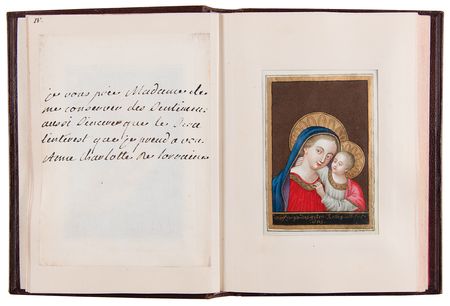 IV.
je vous prie Madame de
me conserver des Sentimens
aussi Sinceres que le Sera
linterest que je prend a vous
Anne Charlotte De lorraine